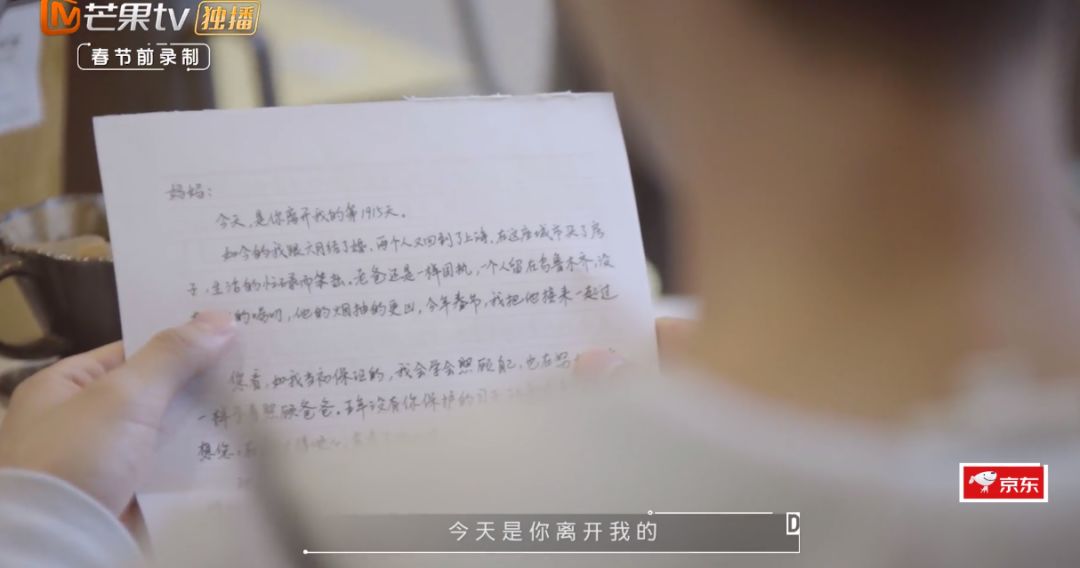 芒果tv 独播
春节前录制
妈妈：
今天，是你离开我的第1915天。
如今的我跟六月结了婚，两个人又回到了上海，在这座城市买了房
子，生活的忙碌而紧凑。老爸还是一样固执，一个人留在乌鲁木齐，没
的唠叨，他的烟抽的更凶，今年春节，我把他接来一起过
您看，如我当初保证的，我会学会照顾自己，也在
一样 照顾爸爸。五年没有你保护的日子
想您
京东
今天是你离开我的
D